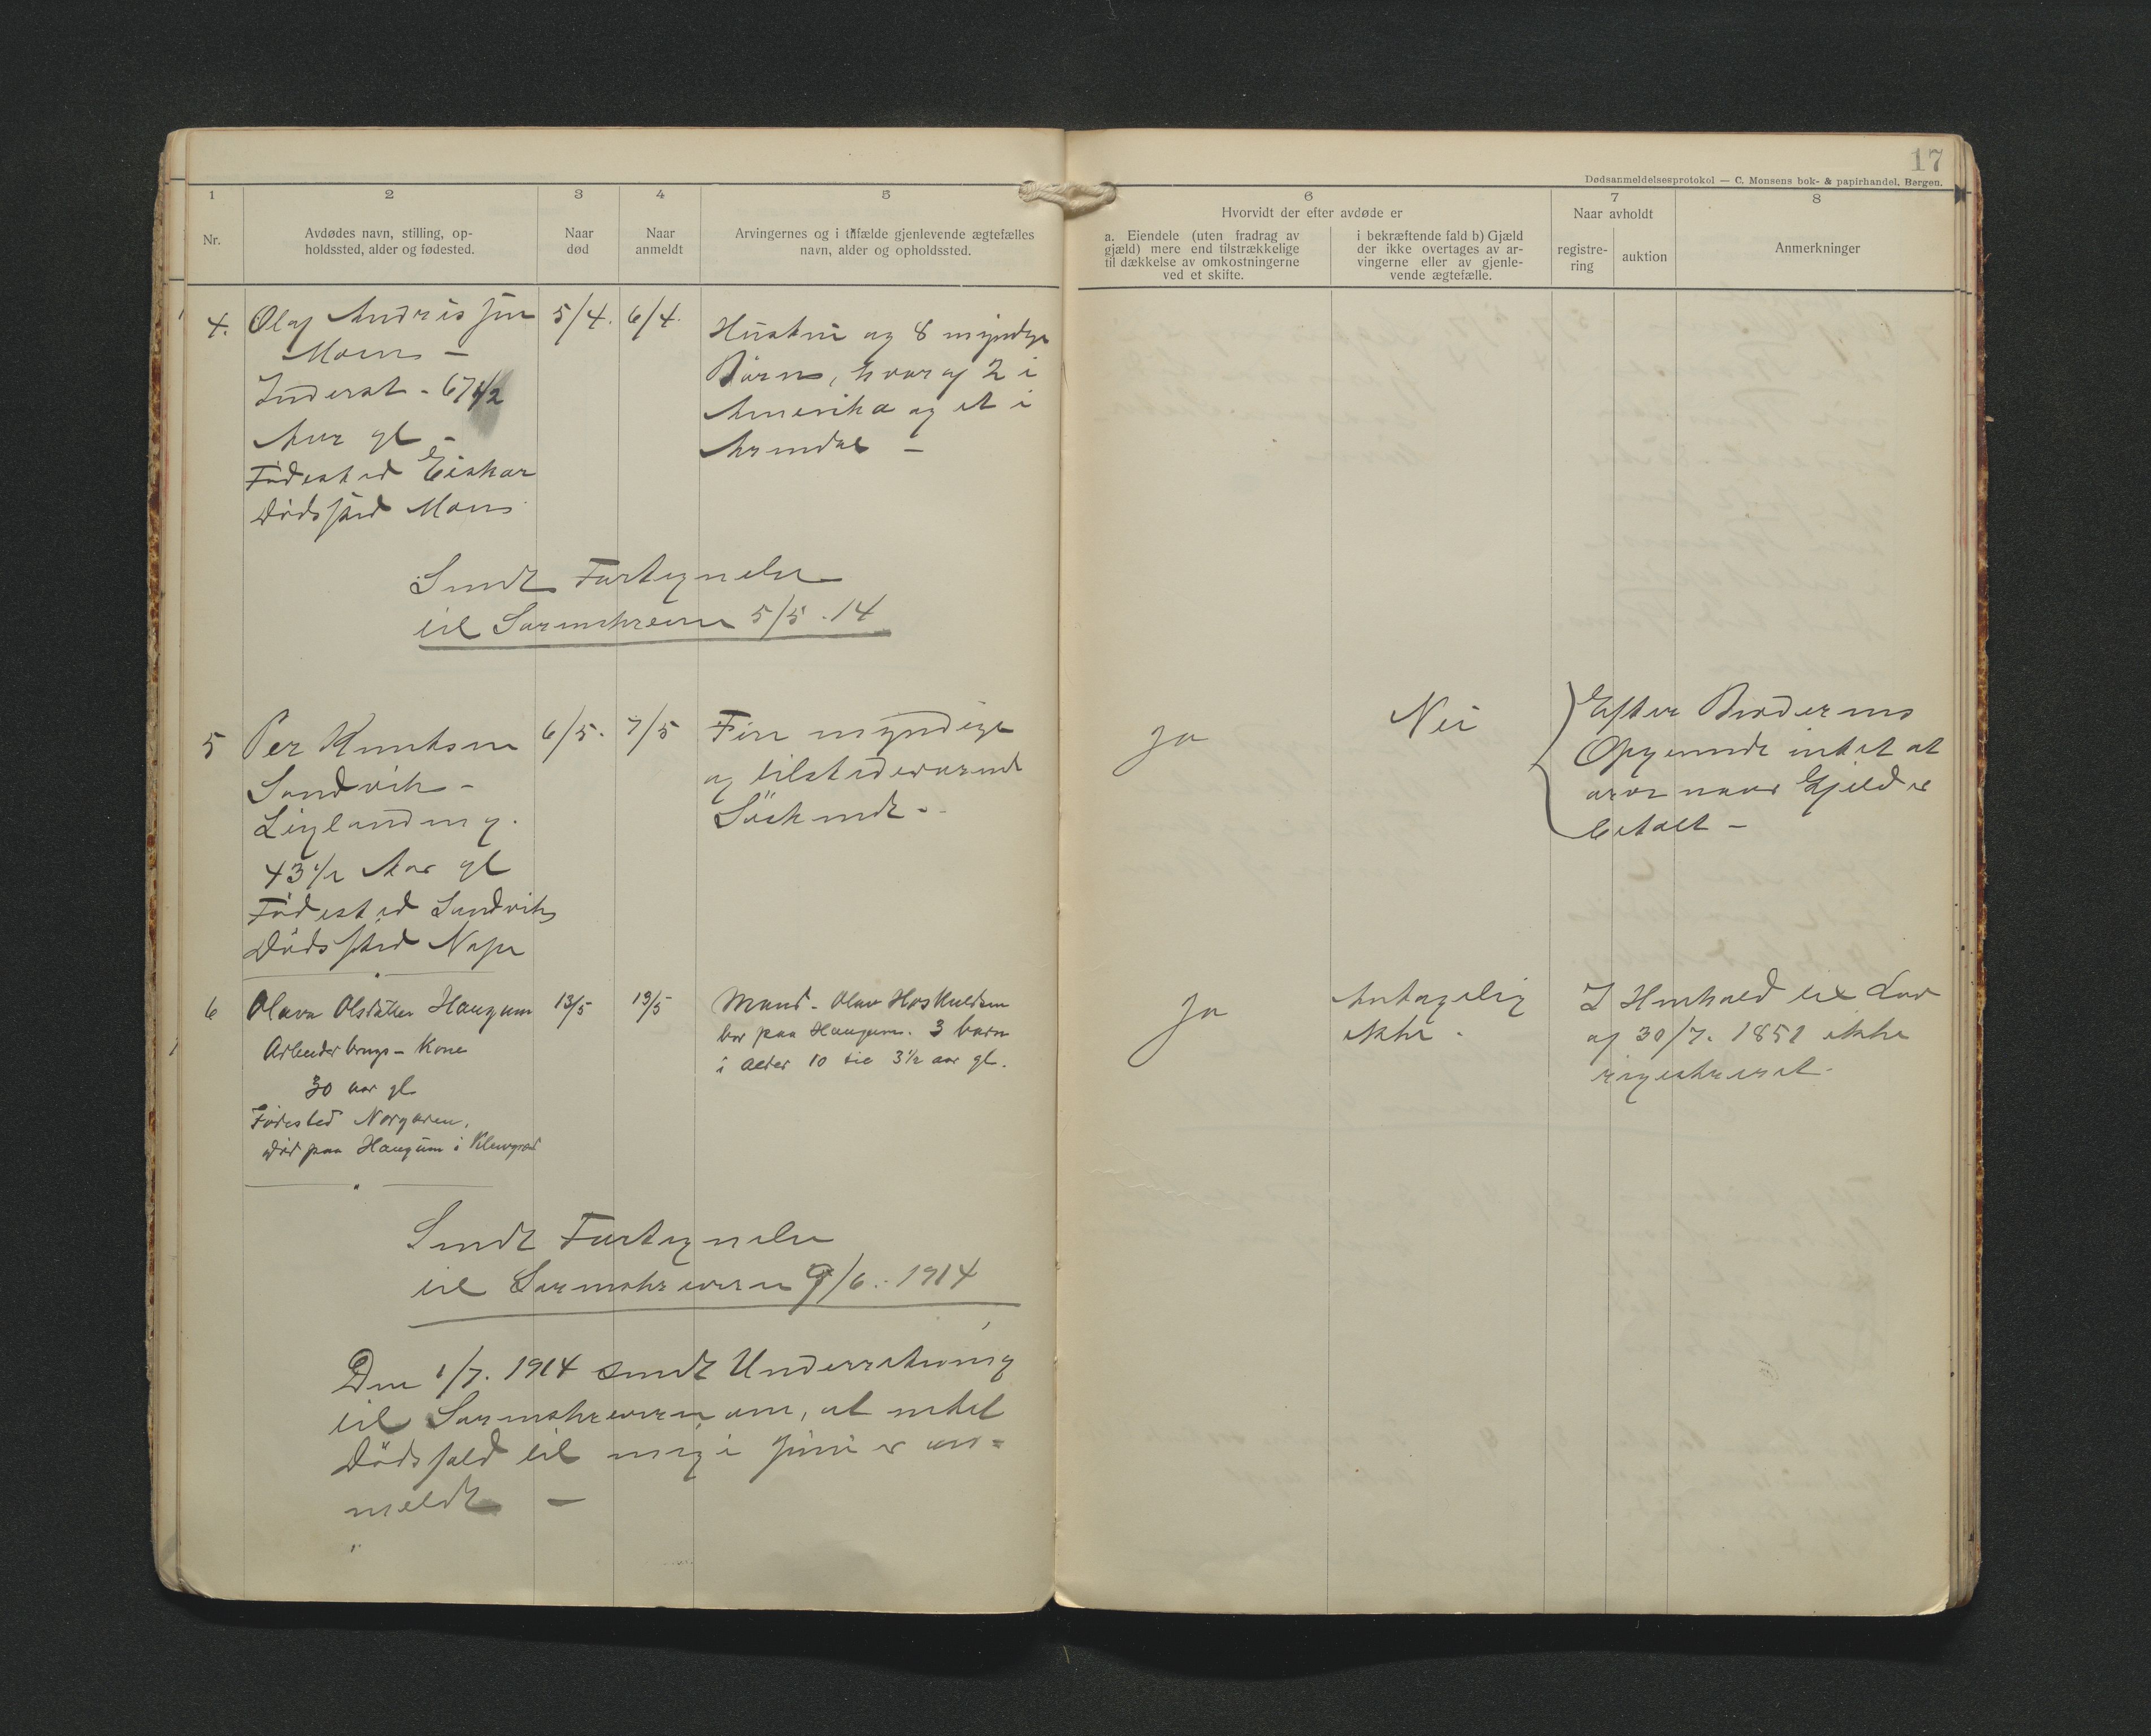 17
Dødsanmeldelsesprotokol — C. Monsens bok- & papirhandel, Bergen.
1 2 3 4 5 6 7 8
Nr.
Avdødes navn, stilling, op-
holdssted, alder og fødested.
Naar
død
Naar
anmeldt
Arvingernes og i tilfælde gjenlevende ægtefælles
navn, alder og opholdssted.
Hvorvidt der efter avdøde er
a. Eiendele (uten fradrag av
gjæld) mere end tilstrækkelige
til dækkelse av omkostningerne
ved et skifte.
i bekræftende fald b) Gjæld
der ikke overtages av ar-
vingerne eller av gjenle-
vende ægtefælle.
Naar avholdt
registre-
ring
auktion
Anmerkninger
4.
Olaf Andrissen
Moens —
Inderst - 67 1/2
Aar gl -
Fødested Eiskar
Dødssted Moens
5/4.
6/4.
Hustru og 8 myndige
Børn, hvoraf 2 i
Amerika og et i
Arendal —
Sendt Fortegnelse
til Sorenskriveren 5/5. 14
5
Per Knutsen
Sandvik -
43 1/2 Aar gl
Fødested Sandvik
Dødssted
6/5.
7/5
Fire myndige
og tilstedeværende
Søskende -
Ja
Nei
Efter Brødernes
Opgivende intet at
arve naar Gjeld er
betalt —
6
Olava Olsdatter Haugum
Arbeider brugs - Kone
30 aar gl
Fødested
død paa Haugum i
13/5
13/5
Mand - Olav Hoskuldsen
bor paa Haugum. 3 barn
i alder 10 til 3 1/2 aar gl.
Ja
Antagelig
ikke.
I Henhold til Lov
af 30/7. 1851 ikke
registreret.
Sendt Fortegnelse
til Sorenskriveren 9/6. 1914
Den 1/7. 1914 sendt Underretning
til Sorenskriveren om, at intet
Dødsfald til mig i Juni er an-
meldt —